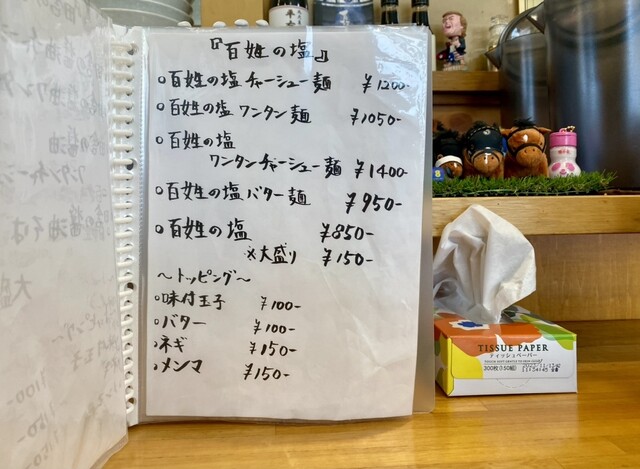 『百姓の塩』
○百姓の塩 チャーシュー麺 ¥1200-
○百姓の塩 ワンタン麺 ¥1050-
○百姓の塩
ワンタンチャーシュー麺 ¥1400-
○百姓の塩バター麺 ¥950-
○百姓の塩 ¥850-
※大盛り ¥150-
〜トッピング〜
○味付玉子 ¥100-
○バター ¥100-
○ネギ ¥150-
○メンマ ¥150-
8
TISSUE PAPER
ティッシュペーパー
300枚(150組)